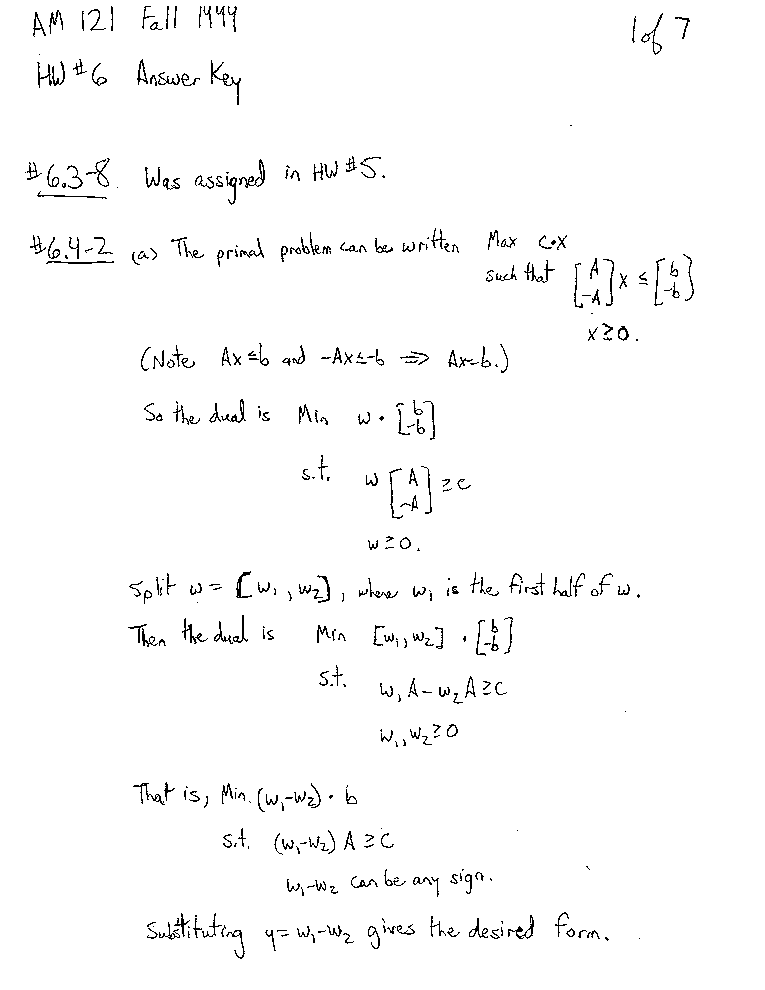 AM 121 Fall 1999
1 of 7
HW #6 Answer Key
#6.3-8. Was assigned in HW #5.
#6.4-2 (a) The primal problem can be written Max c•x
such that [A -A] x ≤ [b -b]
x ≥ 0.
(Note Ax ≤ b and -Ax ≤ -b ⇒ Ax=b.)
So the dual is Min w • [b -b]
s.t. w [A -A] ≥ c
w ≥ 0.
Split w = [w₁, w₂], where w₁ is the first half of w.
Then the dual is Min [w₁, w₂] • [b -b]
s.t. w₁A - w₂A ≥ c
w₁, w₂ ≥ 0
That is, Min. (w₁-w₂) • b
s.t. (w₁-w₂) A ≥ c
w₁-w₂ can be any sign.
Substituting y = w₁-w₂ gives the desired form.